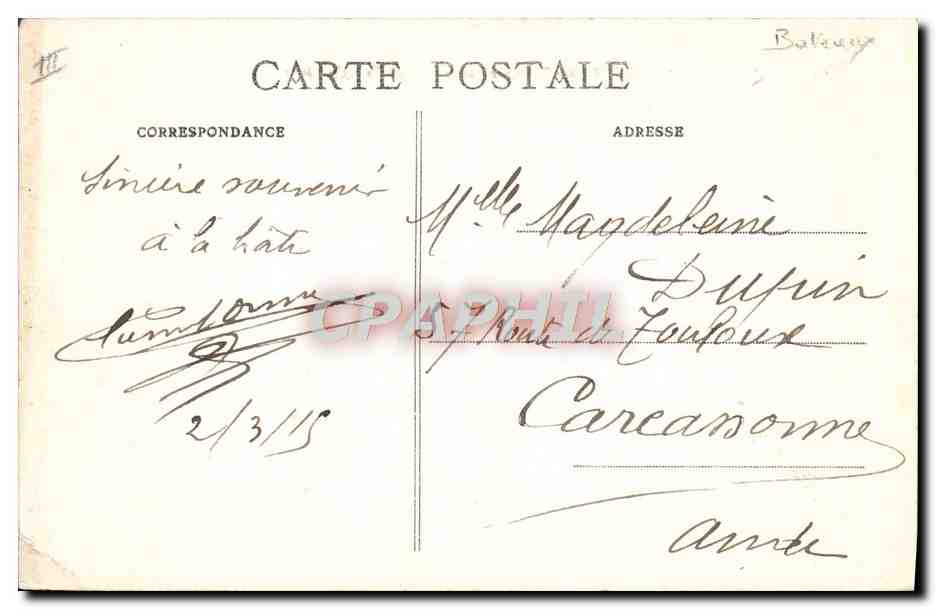 III
CARTE POSTALE
CORRESPONDANCE
ADRESSE
Sincère souvenir
à la hâte
2/3/15
Mlle Magdeleine
Dupin
57 Route de Toulouse
Carcassonne
Aude
CPAPHIL